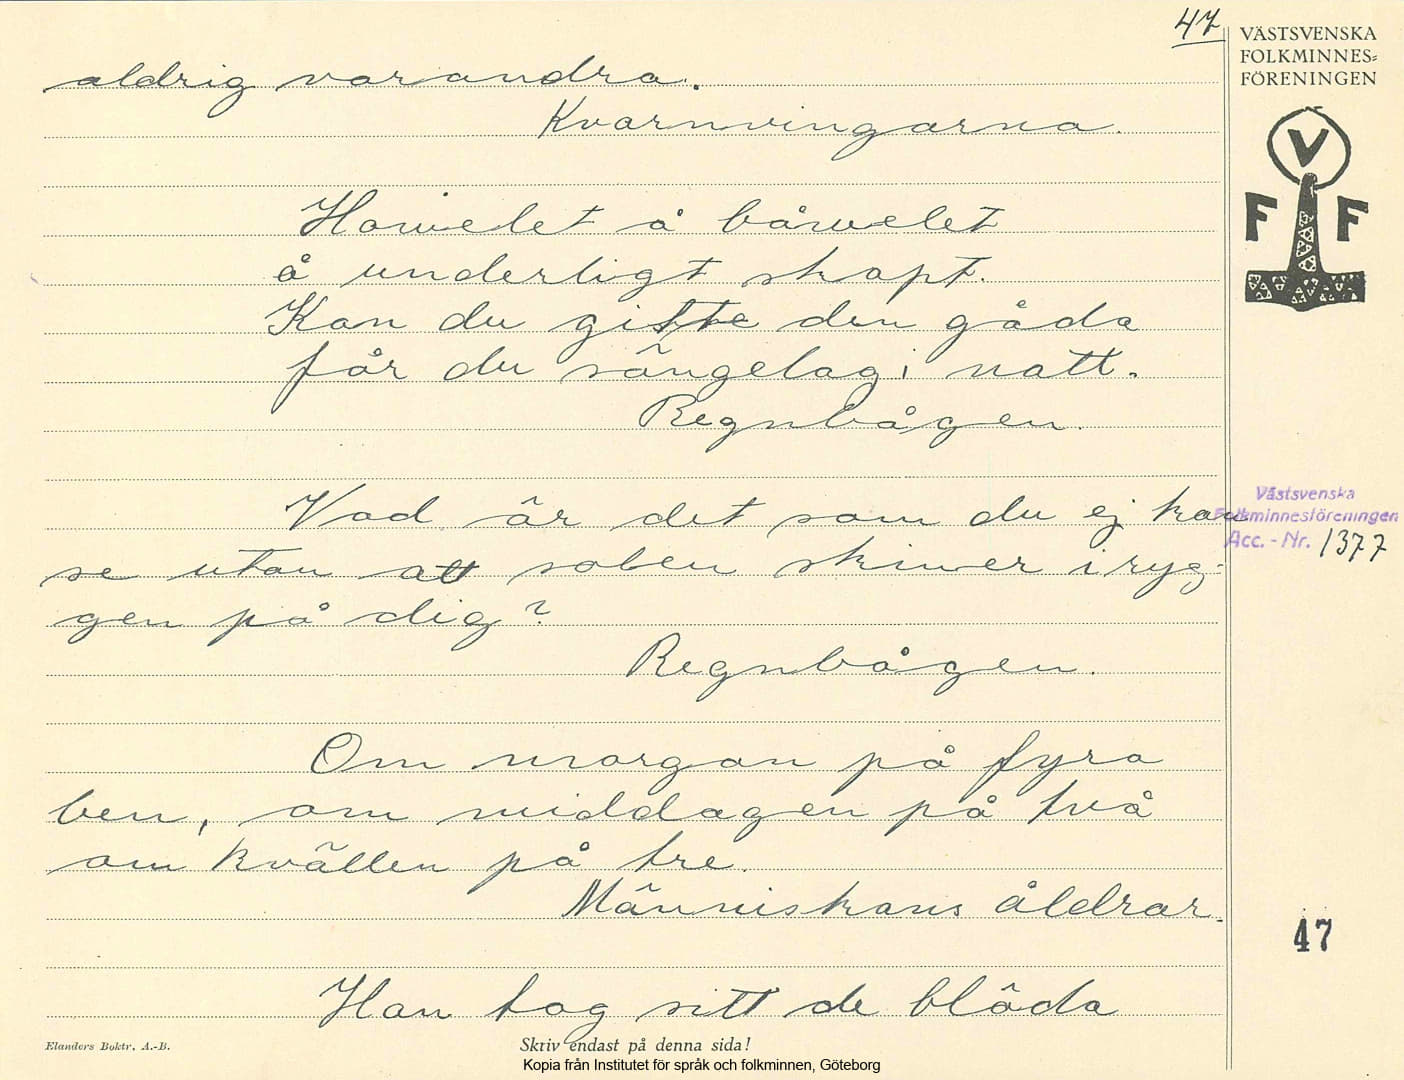 47
VÄSTSVENSKA
FOLKMINNES=
FÖRENINGEN
V
F F
aldrig varandra.
Kvarnvingarna.
Howelet å båwelet
å underligt skapt.
Kan du gitte den gåda
får du sängelag i natt.
Regnbågen.
Vad är det som du ej kan
se utan att solen skiner i ryg-
gen på dig?
Regnbågen.
Västsvenska
Folkminnesföreningen
Acc. - Nr. 1377
Om morgan på fyra
ben, om middagen på två
om kvällen på tre.
Människans åldrar.
47
Han tog sitt de blöda
Elanders Boktr. A.-B.
Skriv endast på denna sida!
Kopia från Institutet för språk och folkminnen, Göteborg